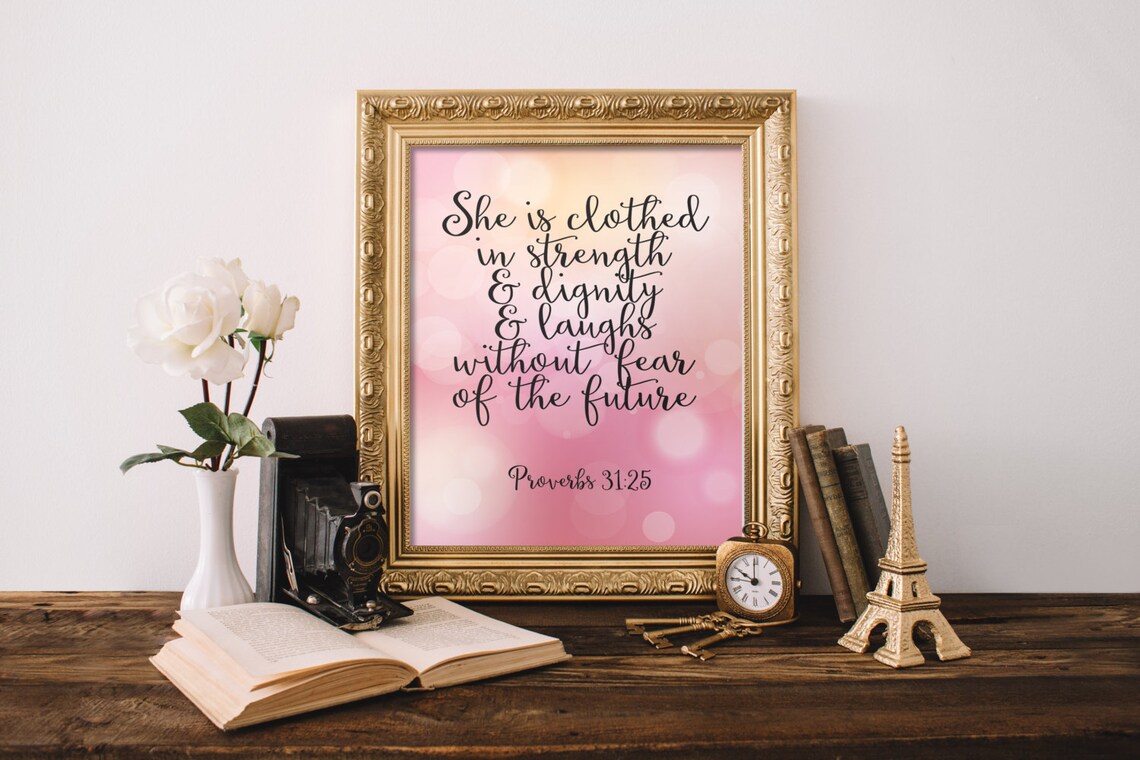 She is clothed
in strength
& dignity
& laughs
without fear
of the future
Proverbs 31:25